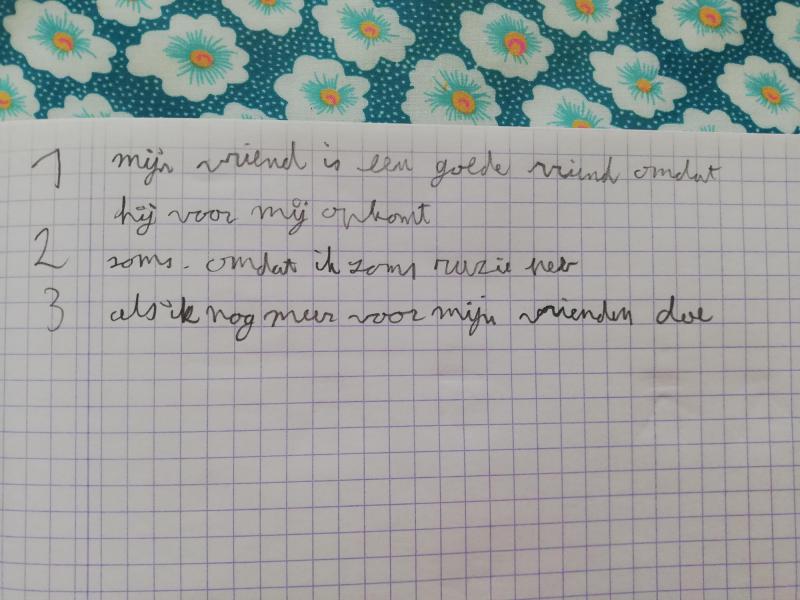 1 mijn vriend is een goede vriend omdat
hij voor mij opkomt
2 soms. omdat ik soms ruzie heb
3 als ik nog meer voor mijn vrienden doe